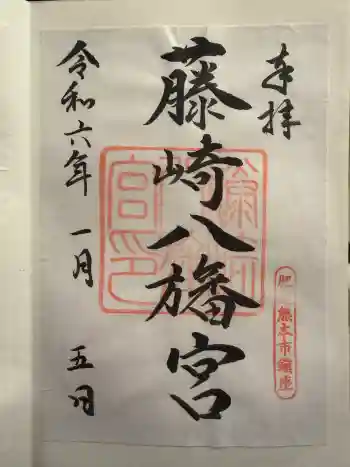 奉拝
藤崎八旛宮
令和六年一月五日
肥
熊本市鎮座